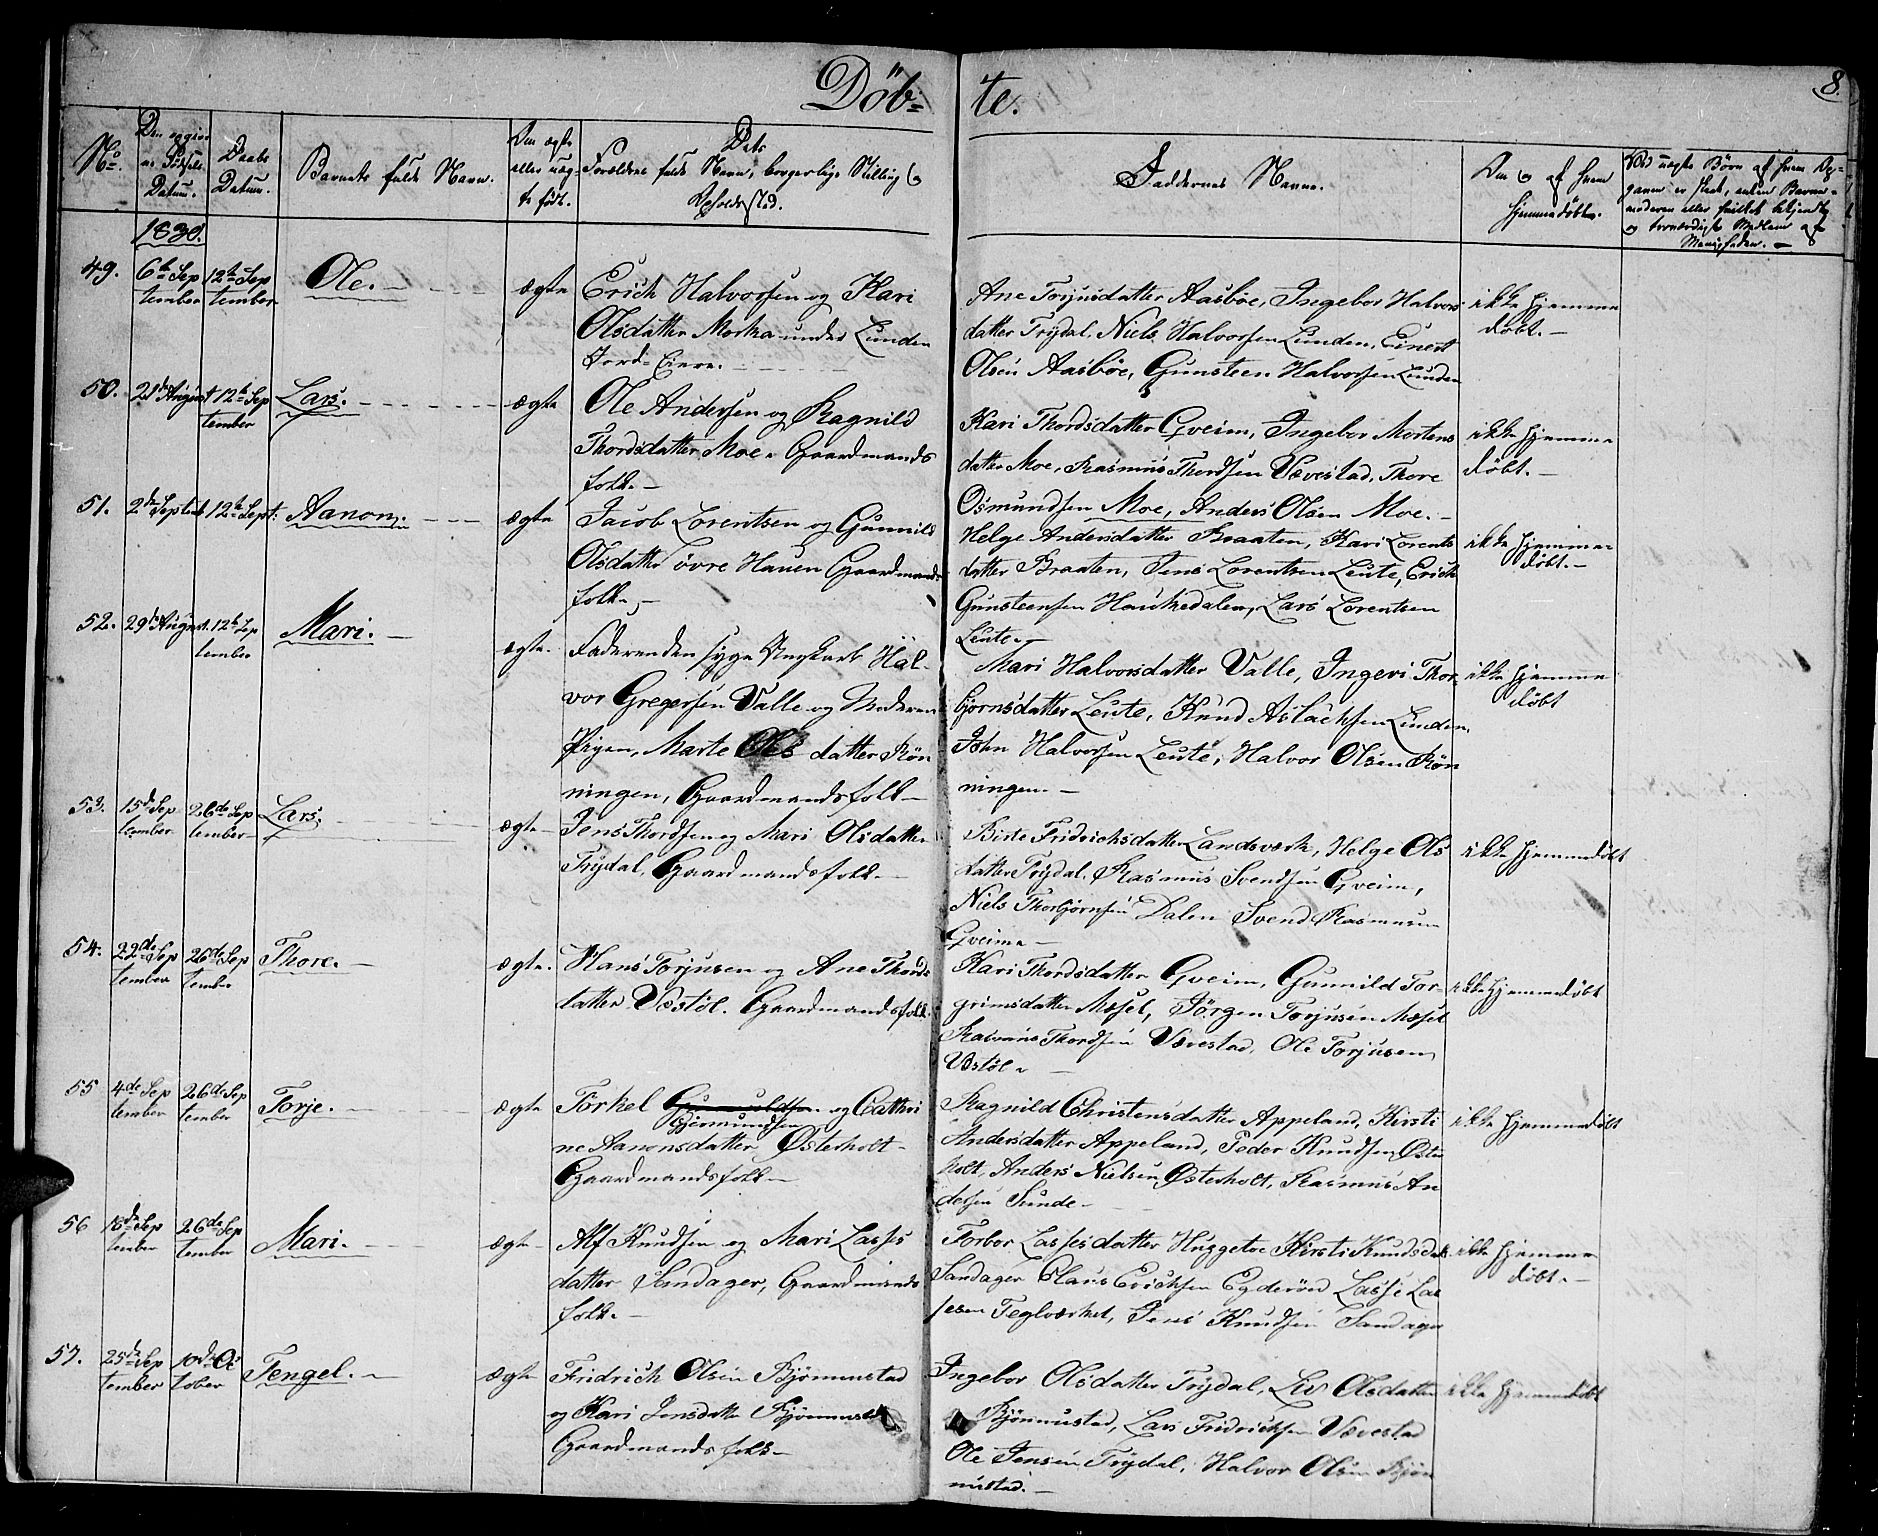 Döb=te.
8.
No.
Den opgivne Födsels Datum.
Daabs Datum.
Barnets fulde Navn.
Om ægte eller uægte født.
Dets Forældres fulde Navn, borgerlige Stilling og Opholdssted.
Faddernes Navne.
Om og af hvem hjemmedöbt.
Ved uægte Börn af hvem
1830.
49.
6te Sep
tember
12te Sep
tember
Ole.
ægte
Erich Halvorsen og Kari
Olsdatter Morka under Lunden
Jord-Eiere.
Ane Torjusdatter Aasböe, Ingebor Halvors
datter Trydal, Niels Halvorsen Lunden, Einert
Olsen Aasböe, Gunsteen Halvorsen Lunden
ikke hjemme
döbt.
50.
21de August
12te Sep
tember
Lars.
ægte
Ole Andersen og Ragnild
Thordsdatter Moe. Gaardmands
folk.
Kari Thordsdatter Gveim, Ingebor Mortens
datter Moe, Rasmus Thordsen Vævestad, Thore
Osmundsen Moe, Anders Olsen Moe.
ikke hjemme
döbt.
51.
2de Septemb
12te Sept:
Aanon.
ægte
Jacob Lorentsen og Gunnild
Olsdatter övre Hauen Gaardmands
folk.
Helge Andersdatter Braaten, Kari Lorents
datter Braaten, Jens Lorentsen Leute, Erich
Gunsteensen Haukedalen, Lars Lorentsen
Leute.
ikke hjemme
döbt.
52.
29de August.
12te Sep
tember
Mari.
ægte.
Faderen den syge Ungkarl Hal-
vor Gregersen Valle og Moderen
Pigen, Marte Ols datter Rön
ningen, Gaardmandsfolk
Mari Halvorsdatter Valle, Ingeri Thor
bjornsdatter Leute, Knud Aslachsen Lunden,
John Halvorsen Leute, Halvor Olsen Rön
ningen.
ikke hjemme
döbt
53.
15de Sep
tember
26de Sep
tember
Lars.
ægte
Jens Thordsen og Mari Olsdatter
Trydal, Gaardmandsfolk.
Birte Fridrichsdatter Landsværk, Helge Ols
datter Trydal, Rasmus Svendsen Gveim,
Niels Thorbjörnsen Dalen Svend Rasmusen
Gveim.
ikke hjemmedöbt
54.
22de Sep
tember
26de Sep
tember
Thore.
ægte.
Hans Torjusen og Ane Thords
datter Væstöl. Gaardmandsfolk.
Kari Thordsdatter Gveim, Gunnild Tor-
grimsdatter Mæsel, Jörgen Torjusen Mæsel
Rasmus Thordsen Vævestad, Ole Torjusen
Væstöl.
ikke hjemmedöbt
55
4de Sep
tember
26de Sep
tember
Torje.
ægte
Torkel og Cathri
Gjermundsen
ne Aanonsdatter Østerholt
Gaardmandsfolk
Ragnild Christensdatter Appeland, Kirsti
Andersdatter Appeland, Peder Knudsen Øster
holt, Anders Nielsen Østerholt, Rasmus An
dersen Sunde
ikke hjemmedöbt
56
18de Sep
tember
26de Sep
tember
Mari.
ægte
Alf Knudsen og Mari Lasses
datter Sandager, Gaardmands
folk.
Torbor Lassesdatter Huggetoe Kirsti Knudsdatt
Sandager Claus Erichsen Egderöen Lasse Las
sesen Teglværket, Jens Knudsen Sandager
ikke hjemme
döbt.
57.
25de Sep
tember
10de Oc
tober
Tengel.
ægte
Fridrich Olsen Bjönnustad
og Kari Jensdatter Bjönnustad
Gaardmandsfolk
Ingebor Olsdatter Trydal, Liv Olsdatter
Bjönnustad, Lars Fridrichsen Vævestad
Ole Jensen Trydal, Halvor Olsen Bjön
nustad.
ikke hjemmedöbt